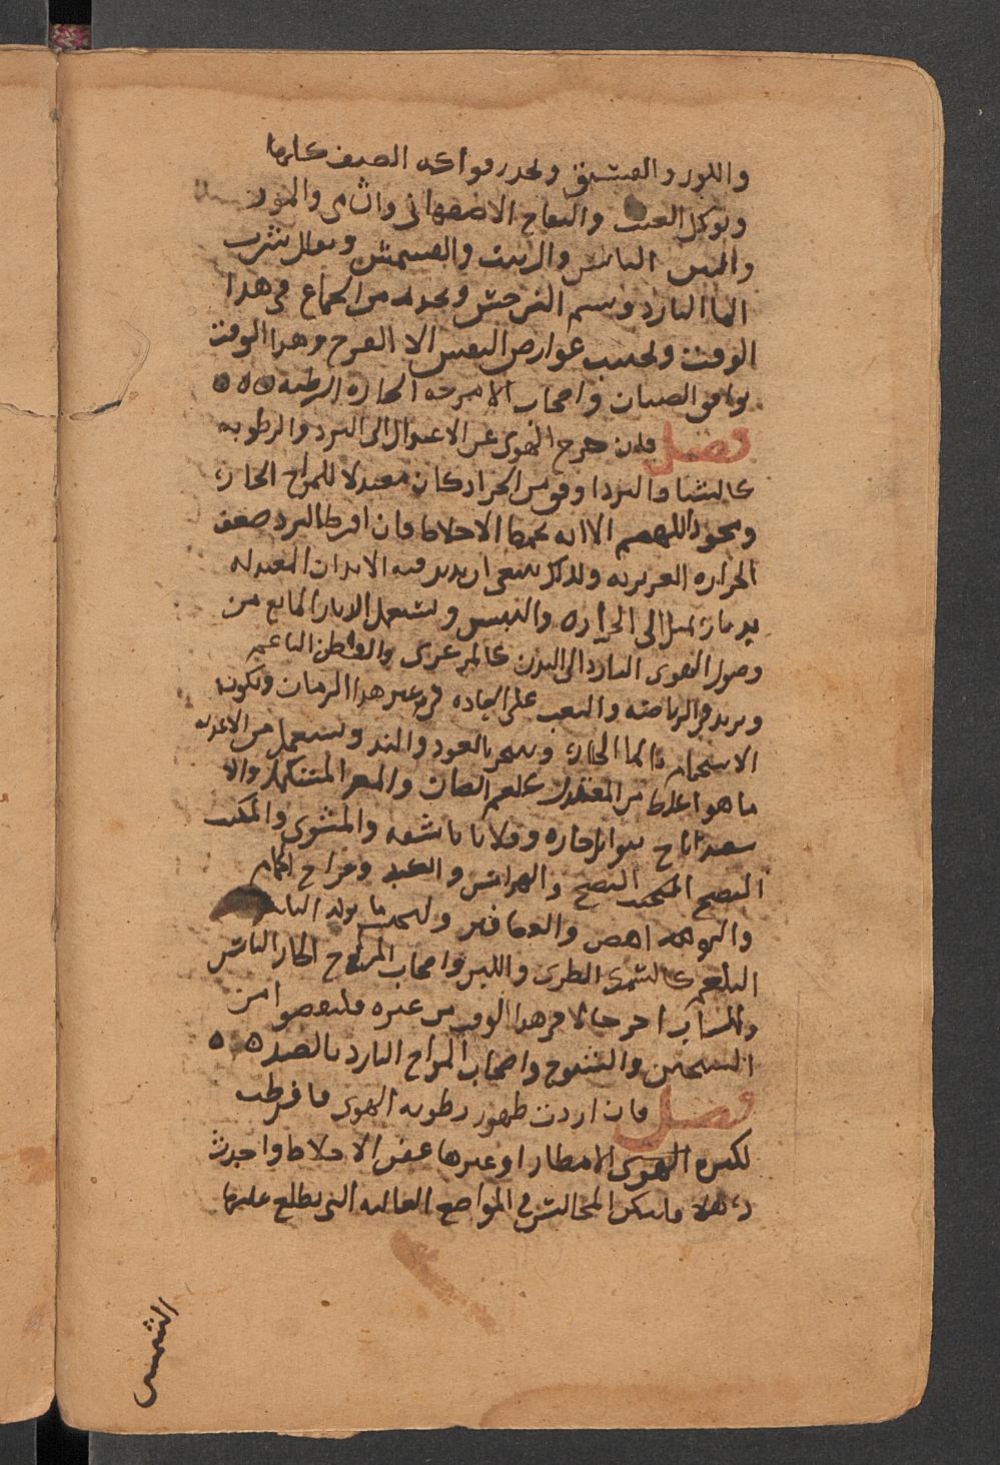 واللوز والفستق ويحذر فواكه الصيف كلها
ويوكل العنب والتفاح الاصفهانى والشامى والموز
والتين اليابس والزبيب والقسمش ويقلل شرب
الما البارد ويشم النرجس ويحذر من الجماع فى هذا
الوقت ويجتنب عوارض النفس الا الفرح وهذا الوقت
يوافق الصبيان واصحاب الامزجه الحاره الرطبه ٥ ٥ ٥
فصل فان خرج الهوى عن الاعتدال الى البرد والرطوبه
كالشتا والبرد اوفق من الحر اذ كان معدلا للمزاج الحار
ويجود الهضم الا انه يجمد الاخلاط فان افرط البرد ضعف
الحراره الغريزيه ولذلك ينبغى ان يدبر فيه الابدان المعتدله
بتدبير يميل الى الحراره واليبس ويستعمل الدثار المانع من
وصول الهوى البارد الى البدن كالمرعزى والقطن الناعم
ويزيد فى الرياضه والتعب على العاده فى غير هذا الزمان ويكون
الاستحمام بالما الحار ويتبخر بالعود والند ويستعمل من الاغذيه
ما هو اغلظ من المعتدل كلحم الضان والمعز المتكهل والا
سفيدباج بتوابل حاره وقلايا ناشفه والمشوى والمكبب
النضيج والهرايس والكبد وفراخ الحمام
والنواهض والعصافير وليجتنب ما يولد
البلغم كالسمك الطرى واللبن واصحاب المزاج الحار اليابس
والشباب احر حالا فى هذا الوقت من غيره فلينقصوا من
التسخين والشيوخ واصحاب المزاج البارد بالضد ٥ ٥ ٥
فصل فان اردت ظهور رطوبه الهوى فافرطت
لكثره الهوى الامطار او غيرها عفن الاخلاط واحدث
ذهلا فليكن المجالس فى المواضع العاليه التى يطلع عليها
الشمس